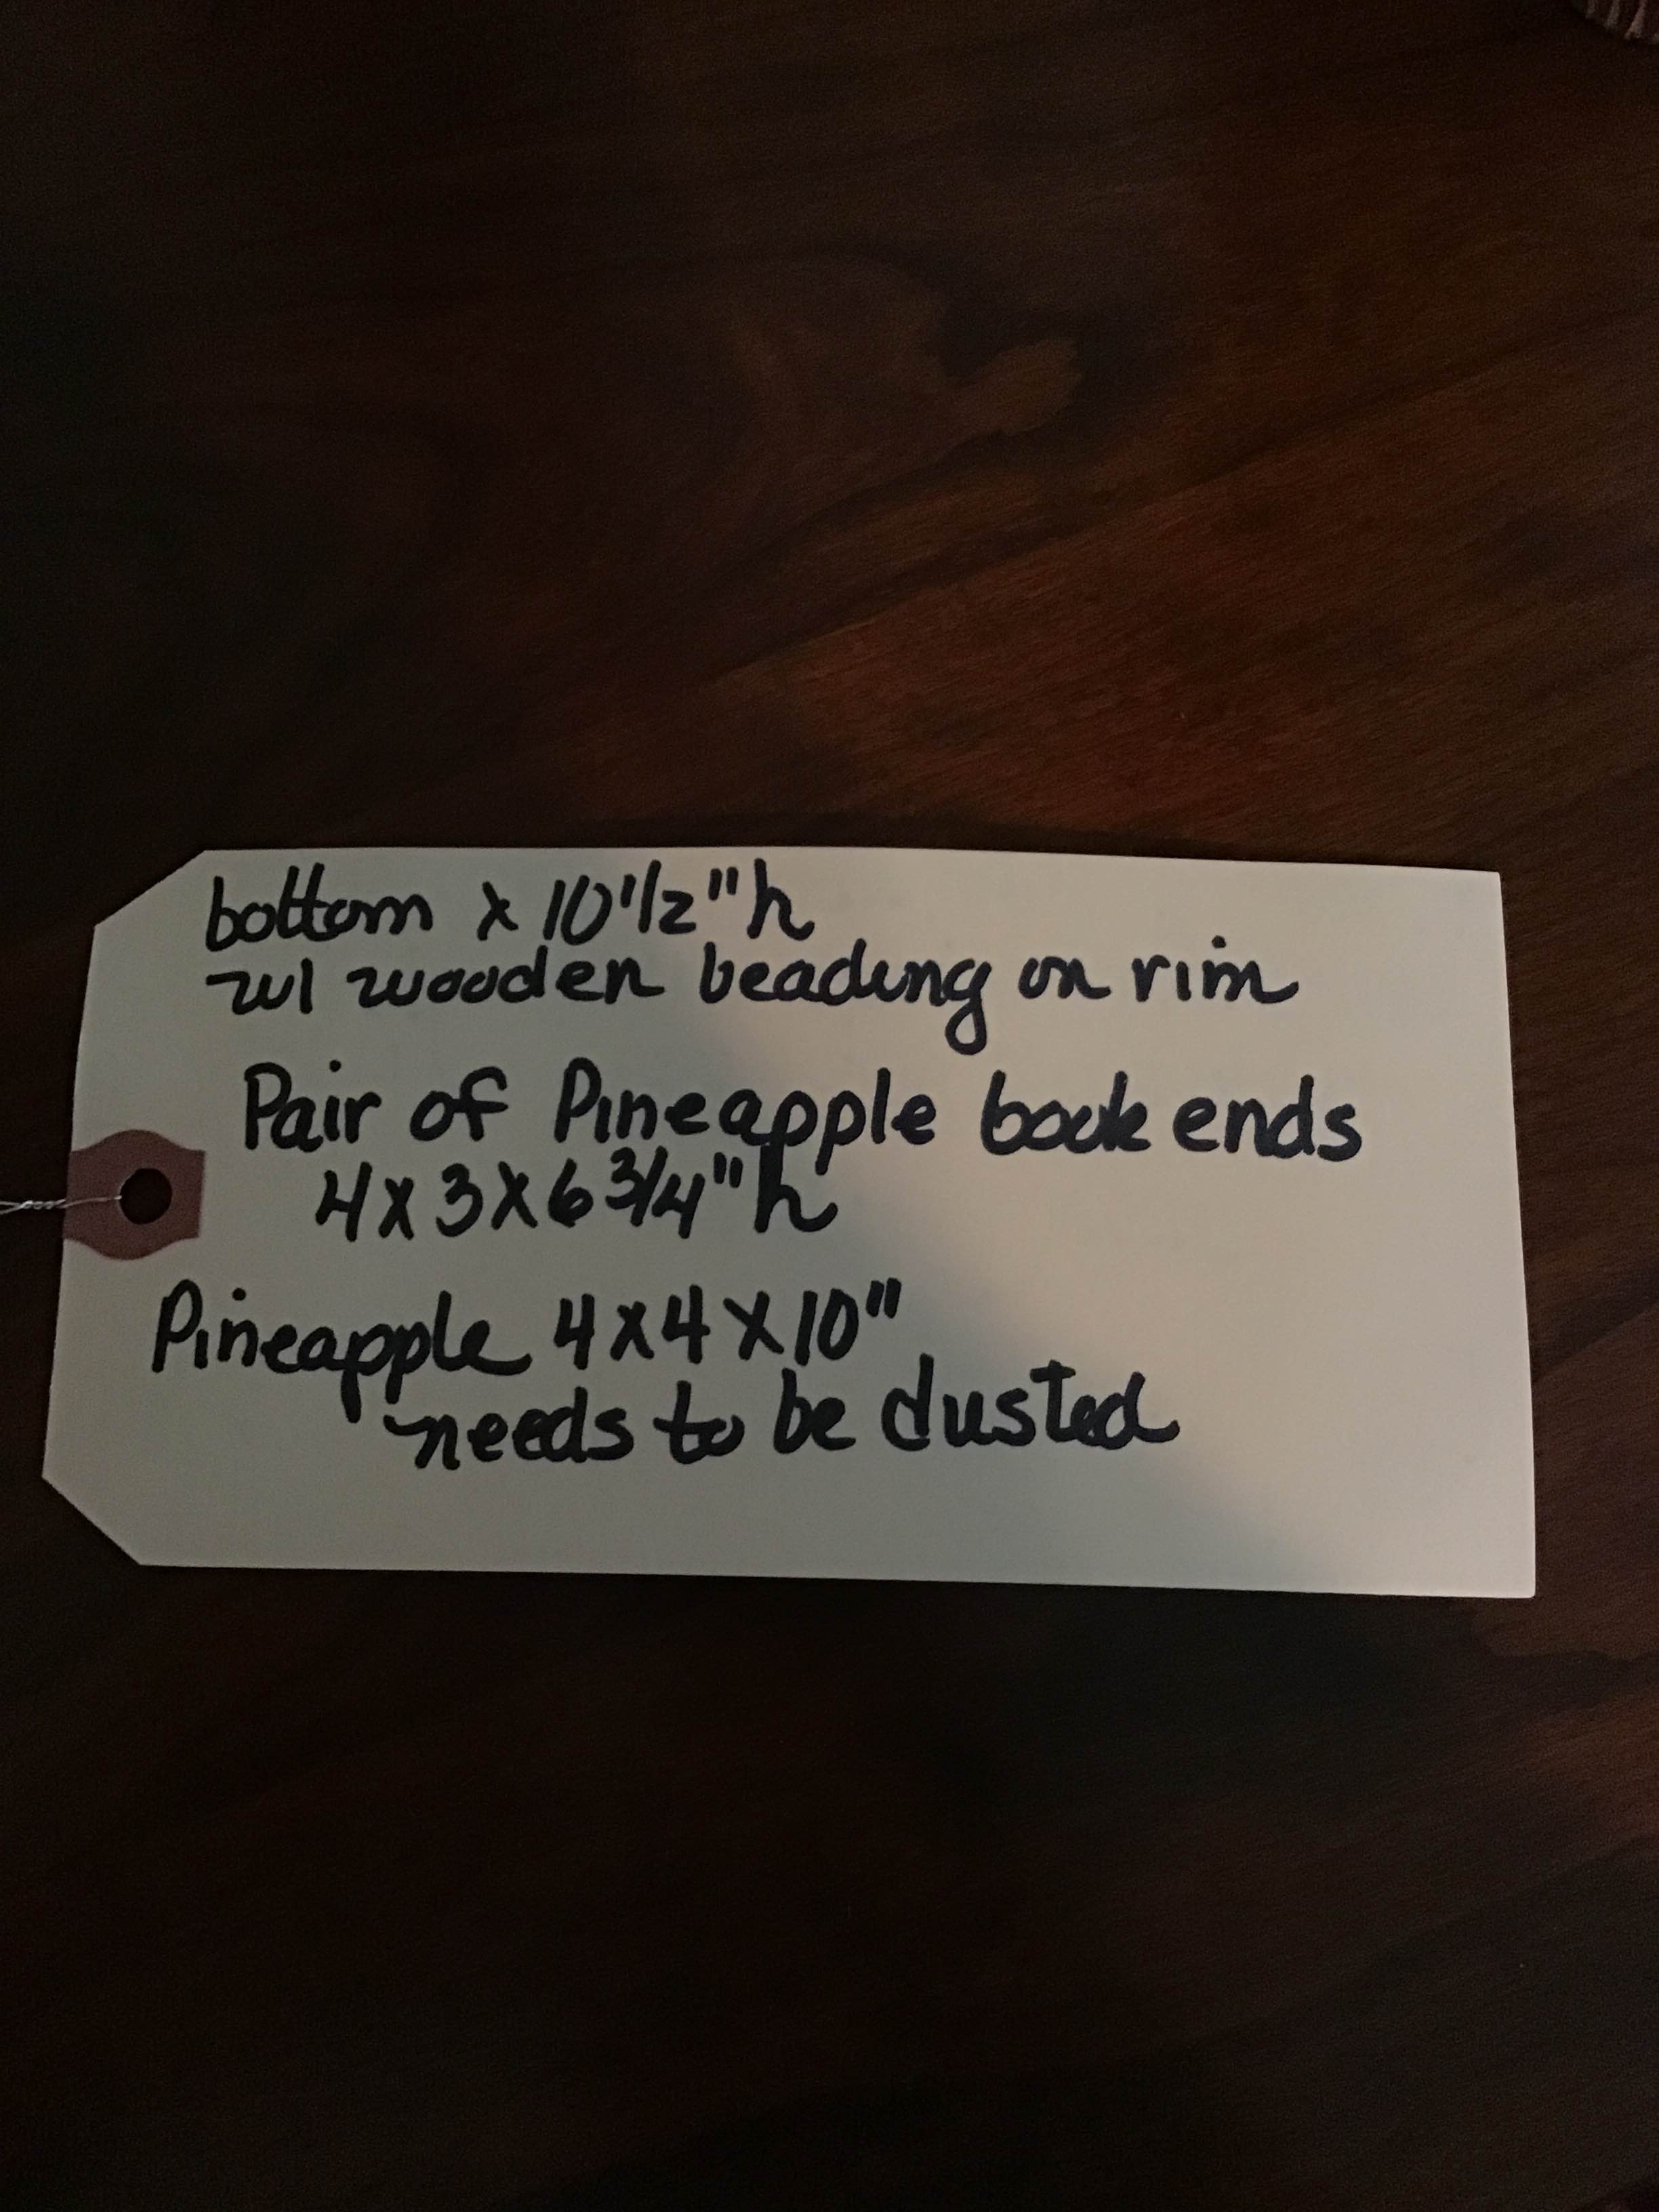 bottom x 10 1/2" h
w/ wooden beading on rim
Pair of Pineapple book ends
4 x 3 x 6 3/4" h
Pineapple 4 x 4 x 10"
needs to be dusted